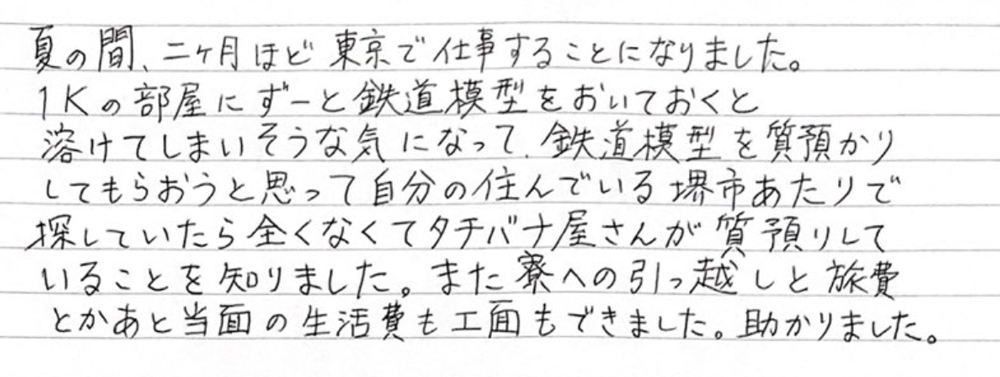 夏の間、二ヶ月ほど東京で仕事することになりました。
1Kの部屋にずーと鉄道模型をおいておくと
溶けてしまいそうな気になって、鉄道模型を質預かり
してもらおうと思って自分の住んでいる堺市あたりで
探していたら全くなくてタチバナ屋さんが質預りして
いることを知りました。また寮への引っ越しと旅費
とかあと当面の生活費も工面もできました。助かりました。